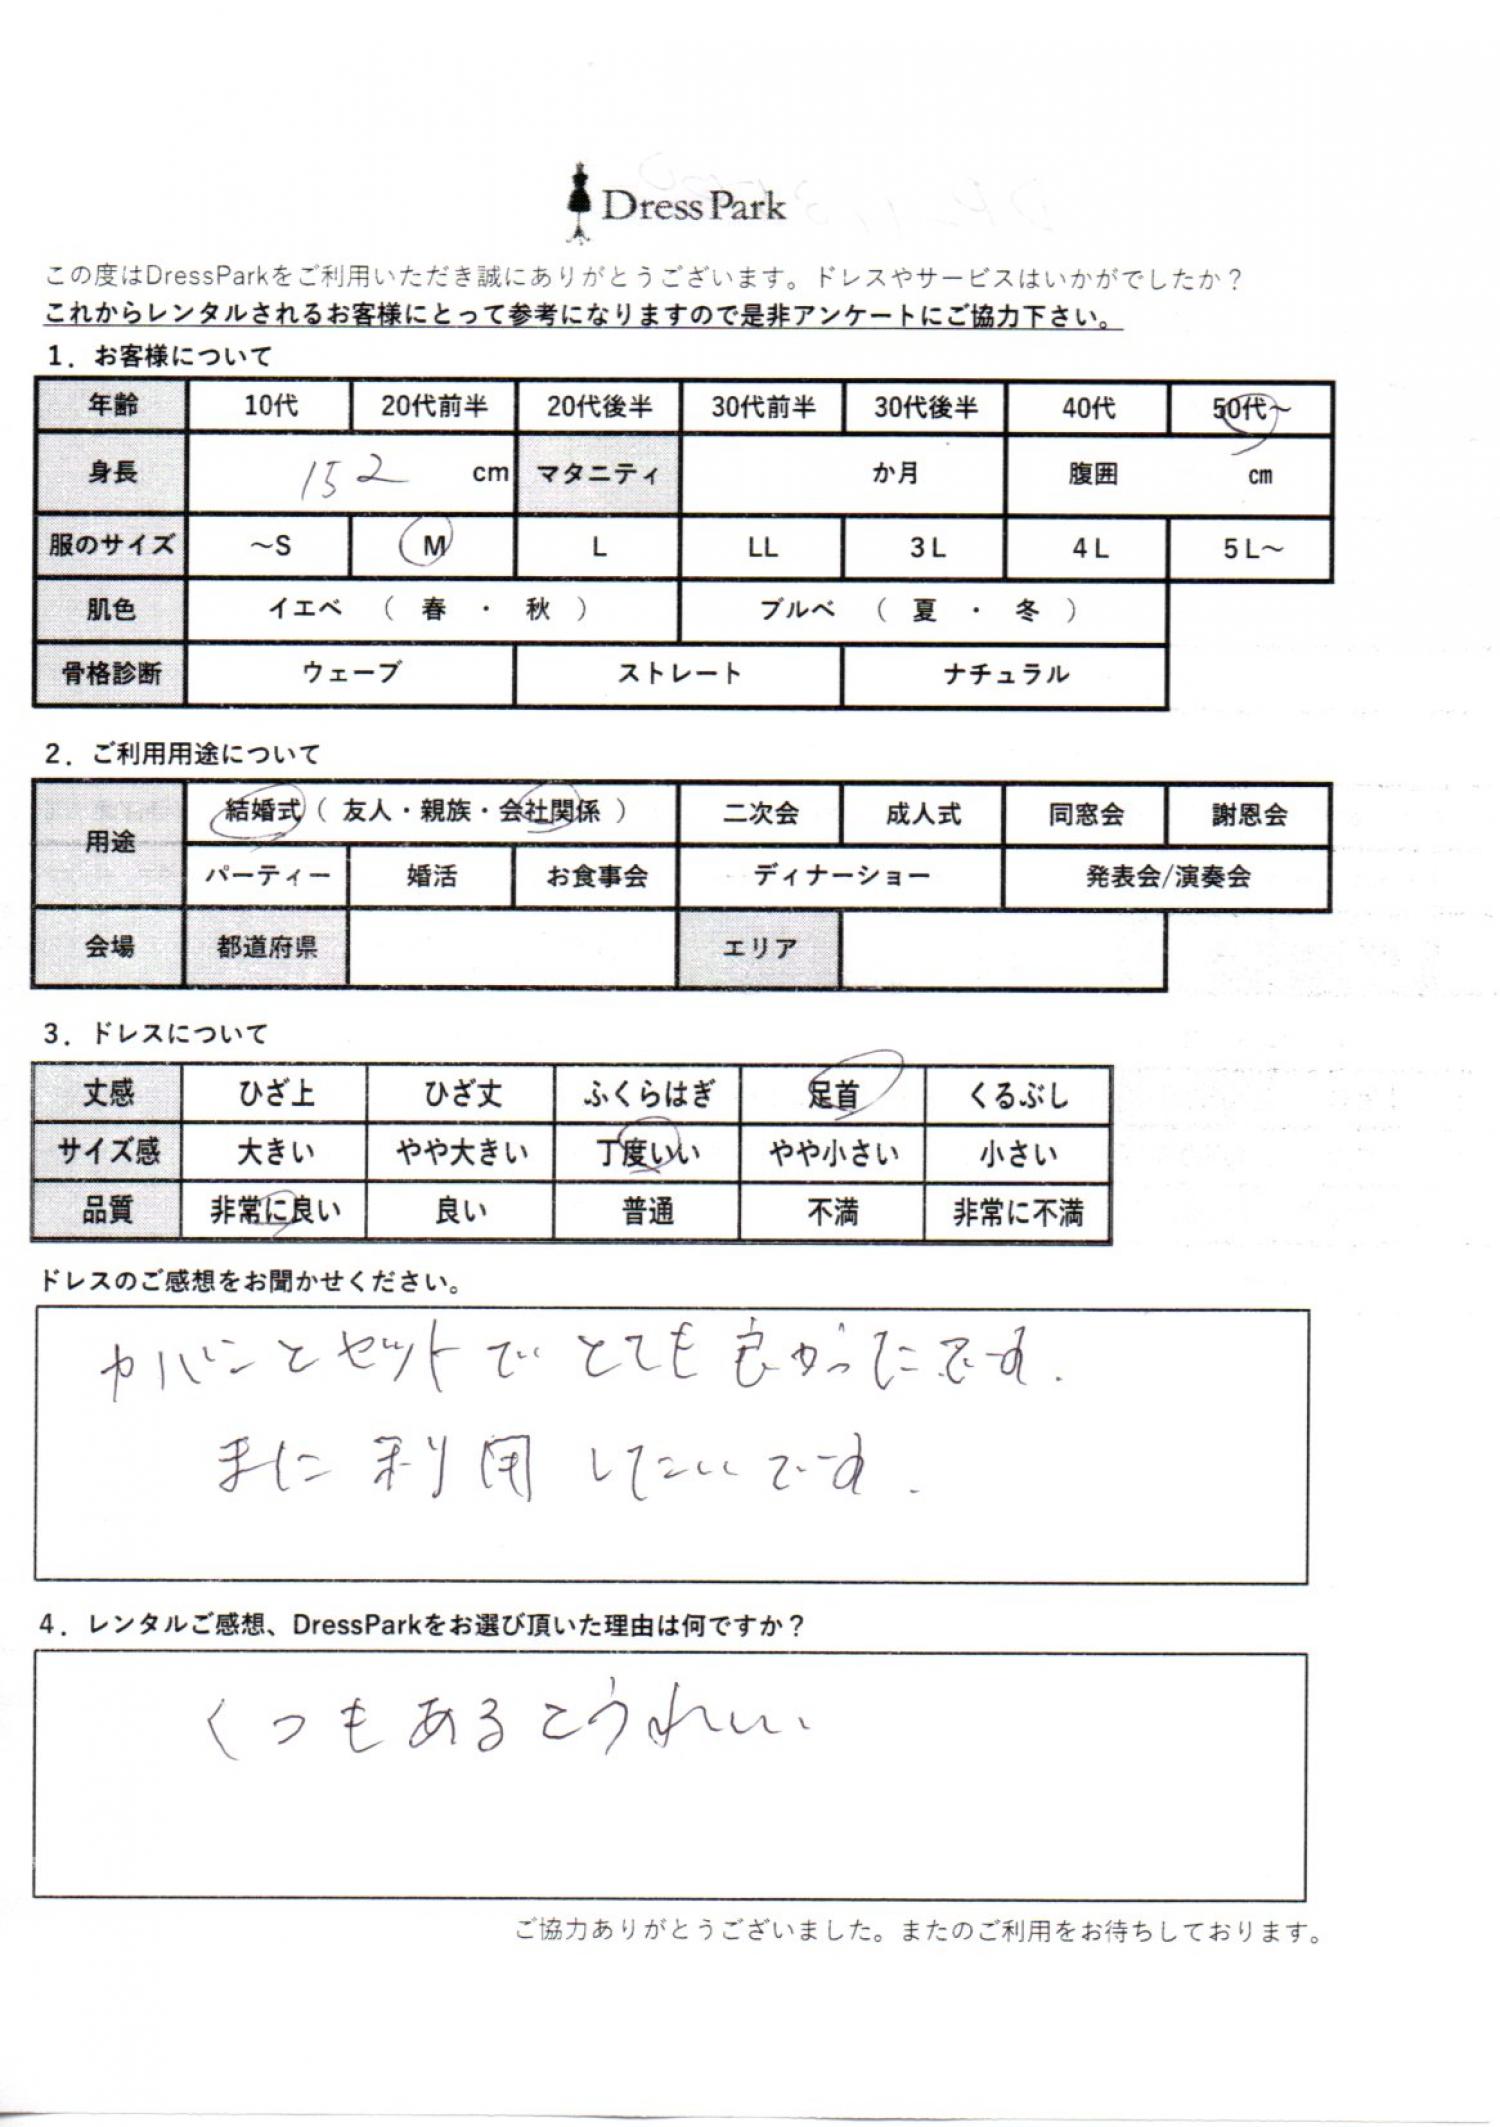 DressPark
この度はDressParkをご利用いただき誠にありがとうございます。ドレスやサービスはいかがでしたか？
これからレンタルされるお客様にとって参考になりますので是非アンケートにご協力下さい。
1．お客様について
年齢 10代 20代前半 20代後半 30代前半 30代後半 40代 50代～
身長 152 cm マタニティ か月 腹囲 cm
服のサイズ ～S M L LL 3L 4L 5L～
肌色 イエベ （ 春 ・ 秋 ） ブルベ （ 夏 ・ 冬 ）
骨格診断 ウェーブ ストレート ナチュラル
2．ご利用用途について
用途 結婚式（ 友人・親族・会社関係 ） 二次会 成人式 同窓会 謝恩会
パーティー 婚活 お食事会 ディナーショー 発表会/演奏会
会場 都道府県 エリア
3．ドレスについて
丈感 ひざ上 ひざ丈 ふくらはぎ 足首 くるぶし
サイズ感 大きい やや大きい 丁度いい やや小さい 小さい
品質 非常に良い 良い 普通 不満 非常に不満
ドレスのご感想をお聞かせください。
カバンとセットでとても良かったです．
また利用したいです．
4．レンタルご感想、DressParkをお選び頂いた理由は何ですか？
くつもあるとうれしい
ご協力ありがとうございました。またのご利用をお待ちしております。